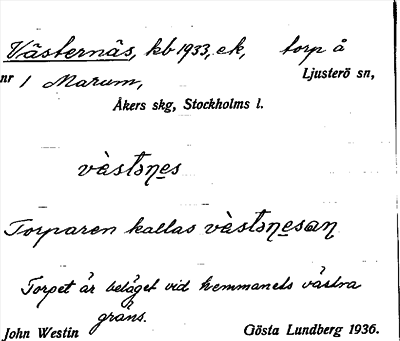 Västernäs, kb 1933, ek, torp å
nr 1 Marum, Ljusterö sn,
Åkers skg, Stockholms l.
vàstəṇes
Torparen kallas vàstəṇesaṇ
Torpet är beläget vid hemmanets västra
gräns.
John Westin Gösta Lundberg 1936.